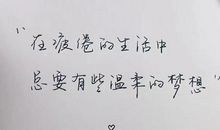 “在疲倦的生活中
总要有些温柔的梦想”